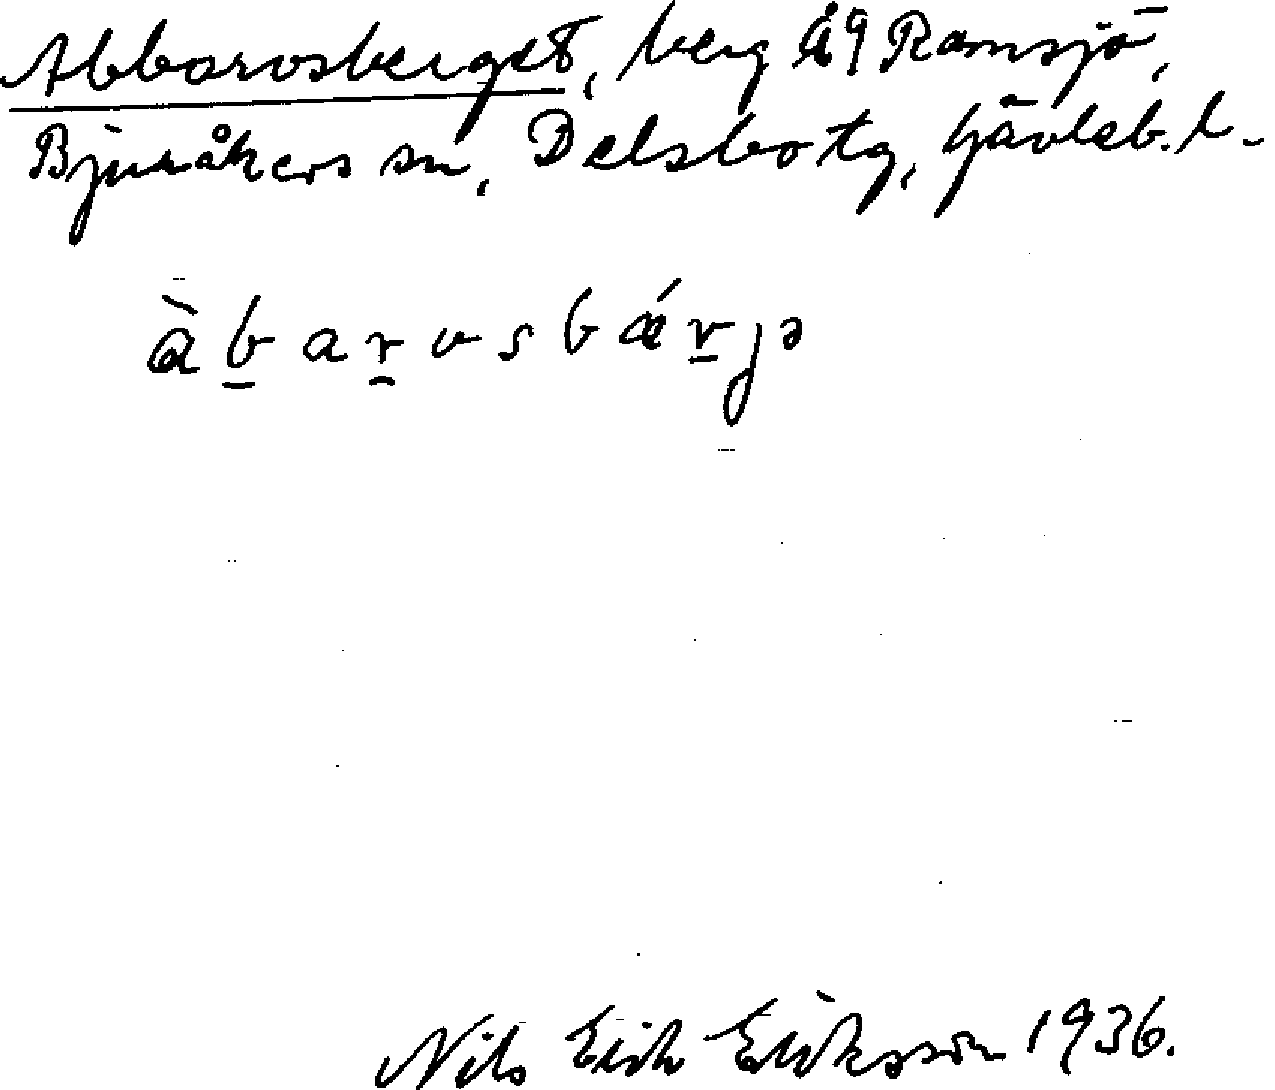 Abbarvsberget, berg å 9 Ramsjö,
Bjuråkers sn, Delsbo tg, Gävleb. l.
àbarvsbǽrjə
Nils Erik Eriksson 1936.